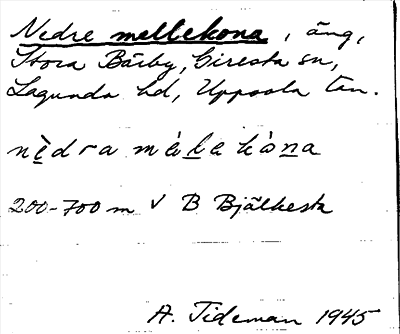 Nedre mellekona, äng,
Stora Bärby, Giresta sn,
Lagunda hd, Uppsala län.
nèdra mélekòna
200-700 m V B Bjälkesta
A. Tideman 1945